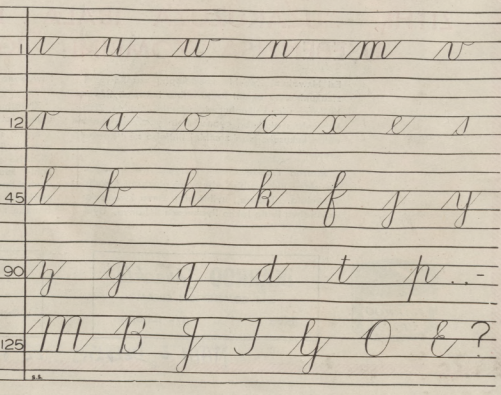 1 i u w n m v
12 r a o c x e s
45 l b h k f j y
90 z g q d t p . . -
125 M B J I G O E ?
"